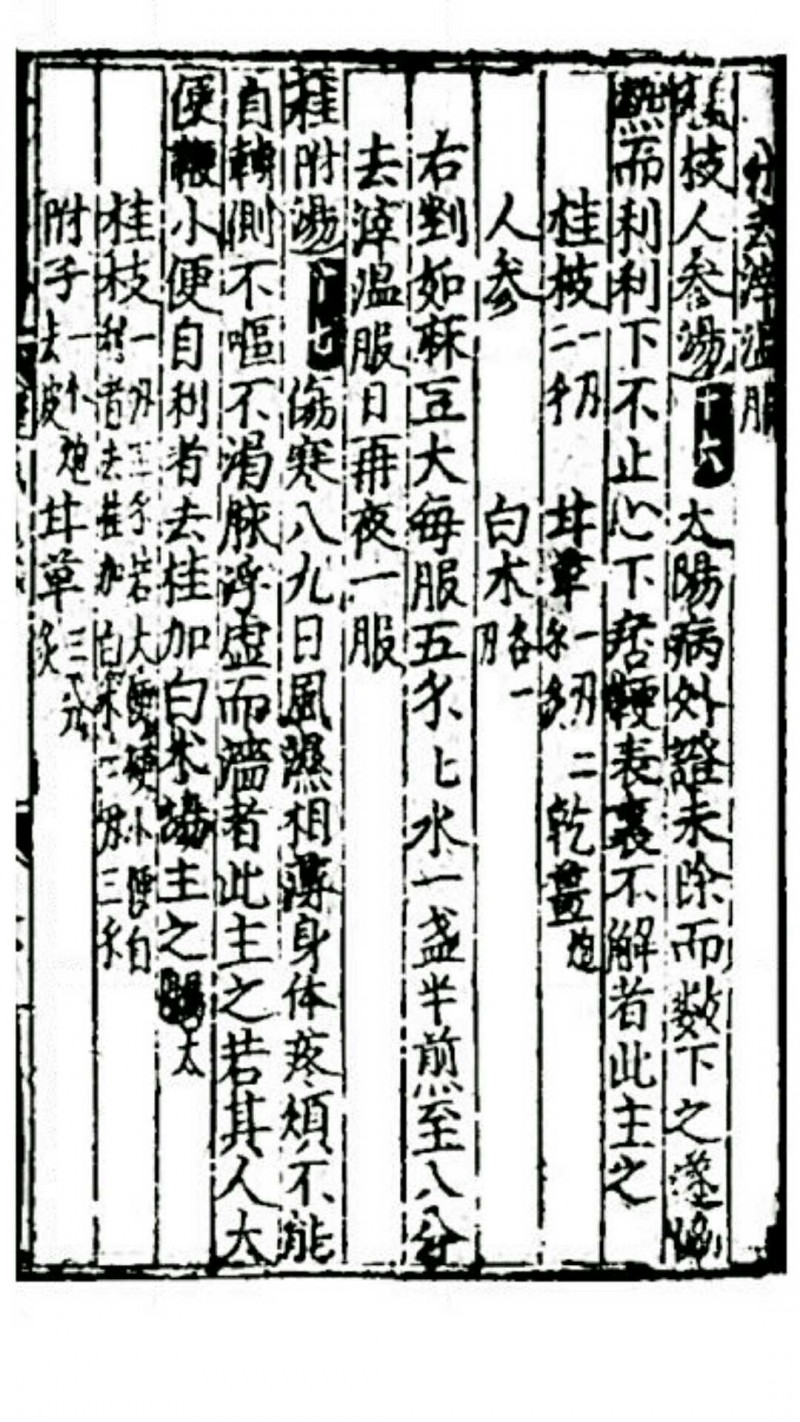 分去滓温服
桂枝人参湯十六 太陽病外證未除而数下之遂協
熱而利利下不止心下痞鞕表裏不解者此主之
桂枝一刄二分 甘草一刄二 乾薑炮
人参 白术各一
右剉如麻豆大每服五分匕水一盏半煎至八分
去滓温服日再夜一服
桂附湯 傷寒八九日風濕相薄身体疼煩不能
自轉側不嘔不渴脉浮虛而濇者此主之若其人大
便鞕小便自利者去桂加白术湯主之太
桂枝一刄三分若大便硬小便自利者去桂加白术一刄三分
附子一个炮去皮 甘草三分炙